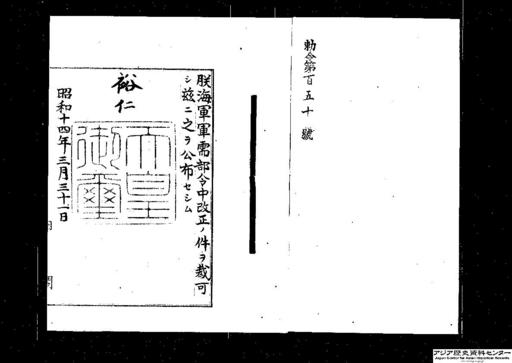 勅令第百五十號
朕海軍軍需部令中改正ノ件ヲ裁可
シ茲ニ之ヲ公布セシム
裕仁
天皇
御璽
昭和十四年三月三十一日
内 閣
アジア歴史資料センター
Japan Center for Asian Historical Records